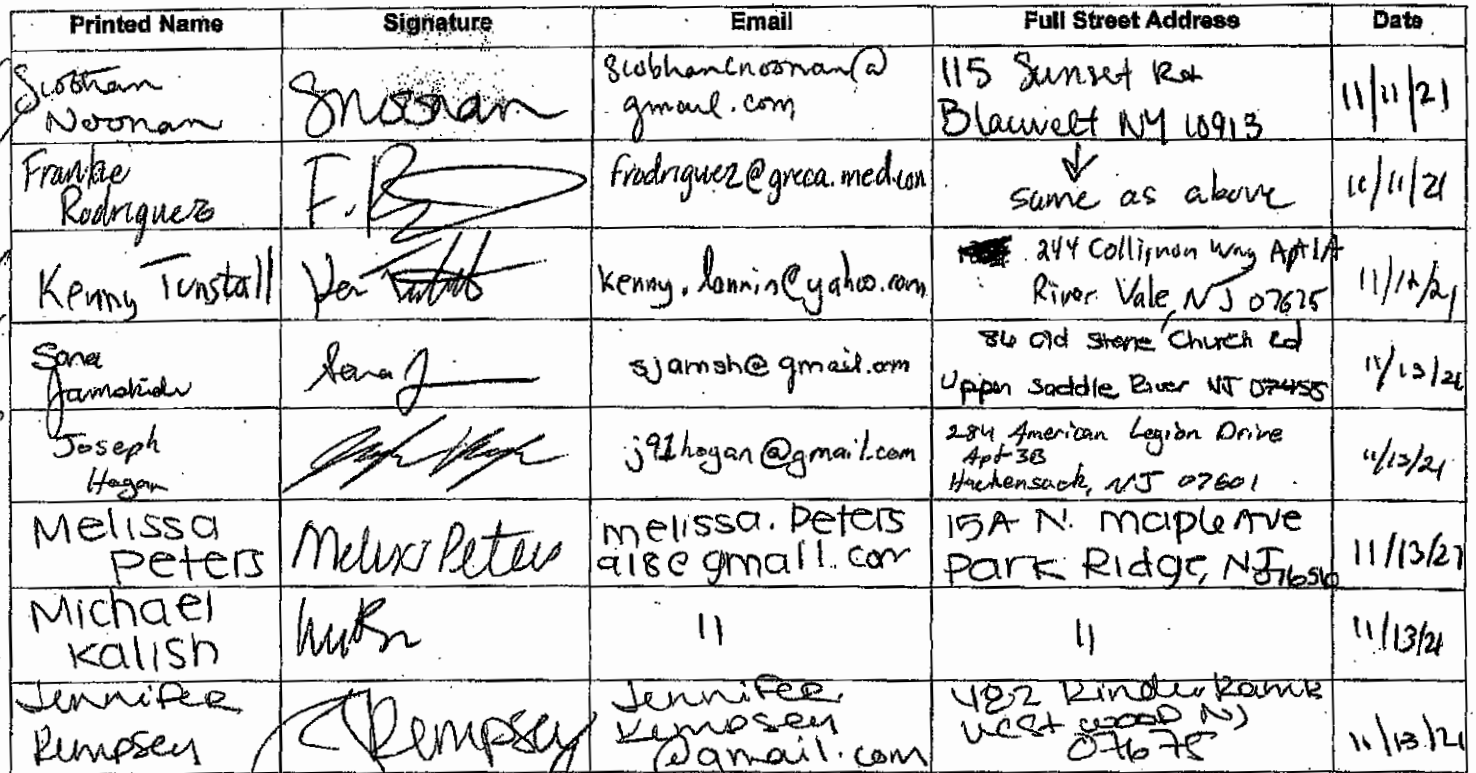 Printed Name Signature Email Full Street Address Date
Siobhan
Noonan
SNoonan
siobhancnoonan@
gmail.com
115 Sunset Rd
Blauvelt NY 10913
11/11/21
Frankie
Rodriguez
F. R
frodriguez@greca.med.com
same as above
11/11/21
Kenny Tunstall
kenny.lannin@yahoo.com
244 Collignon Way Apt 1A
River Vale, NJ 07675
11/12/21
Sana
Sana J
sjamsh@gmail.com
86 Old Stone Church Rd
Upper Saddle River NJ 07458
11/13/21
Joseph
Hogan
j91hogan@gmail.com
284 American Legion Drive
Apt 3B
Hackensack, NJ 07601
11/13/21
Melissa
Peters
Melissa Peters
melissa.peters
918@gmail.com
15A N. Maple Ave
Park Ridge, NJ 07656
11/13/21
Michael
Kalish
11
11
11/13/21
Jennifer
Kempsey
JKempsey
Jennifer.
Kempsey
@gmail.com
482 Kinderkamk
Westwood NJ
07675
11/13/21